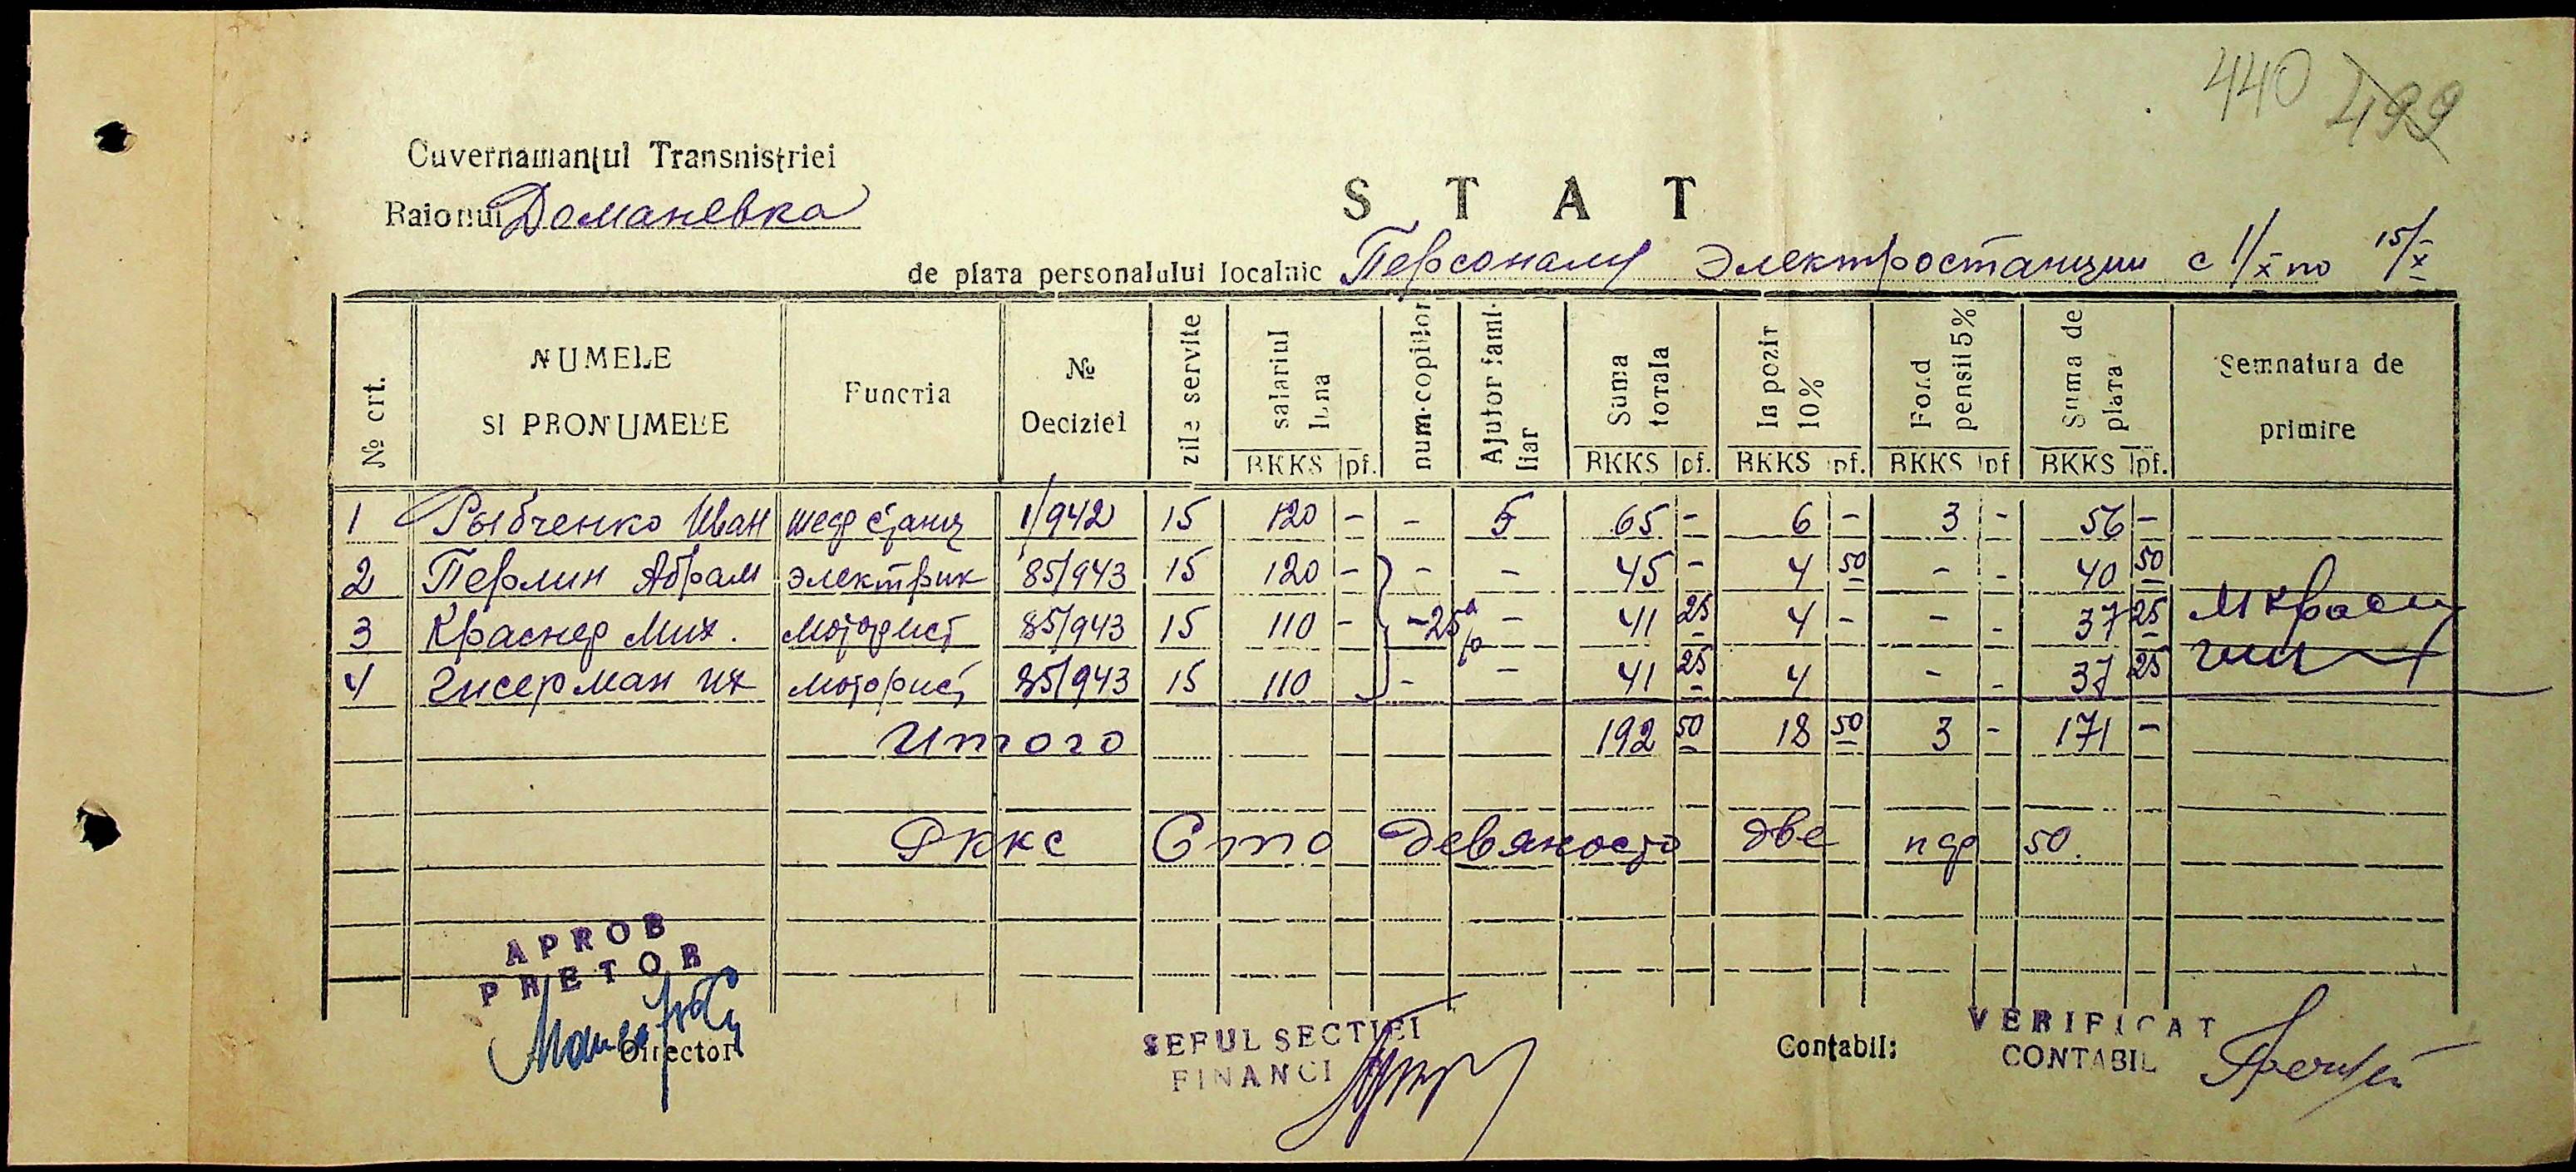 440 499
Guvernamanţul Transnistriei
Raionul Доманевка
S T A T
de plata personalului localnic Персоналу Электростанции с 1/X по 15/X
№ crt. NUMELE SI PRONUMELE Funcтia № Deciziei zile servite salariul luna num·copiilor Ajutor familiar Suma тoтala Impoziт 10% Fond pensii 5% Suma de plaтa Semnatura de primire
RKKS pf. RKKS pf. RKKS pf. RKKS pf RKKS pf.
1 Рыбченко Иван шеф станц 1/942 15 120 - - 5 65 - 6 - 3 - 56 -
2 Перлин Абрам электрик 85/943 15 120 - - - 45 - 4 50 - - 40 50
3 Краснер Мих. моторист 85/943 15 110 - -25% - 41 25 4 - - - 37 25
4 Гисерман их моторист 85/943 15 110 - - 41 25 4 - - 37 25
Итого 192 50 18 50 3 - 171 -
Рккс Сто девяносто две пф 50.
APROB
PRETOR
Director
SEFUL SECTIEI
FINANCI
Contabil:
VERIFICAT
CONTABIL